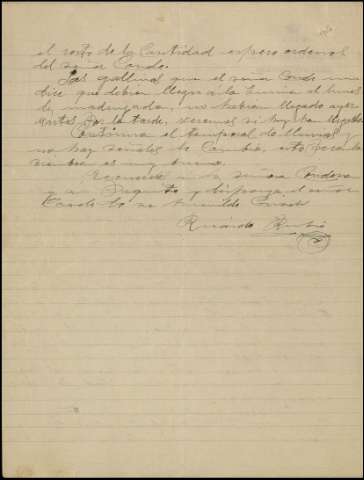 el resto de la Cantidad espero ordenes
del señor Conde.
Las gallinas que el señor Conde me
dice que debian llegar a la
de madrugada, no habian llegado ayer
Martes por la tarde, veremos si hoy han llegado
Continua el temporal de lluvias y
no hay señales de Cambio, esto para la
es muy bueno.
a la señora Condesa
y a y disponga el señor
Conde de su humilde Criado
Ricardo Rubio